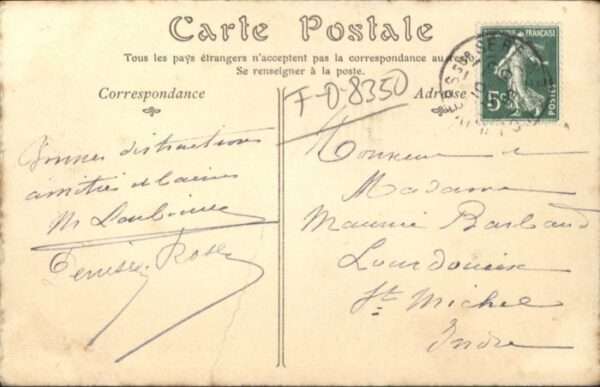 Carte Postale
Tous les pays étrangers n'acceptent pas la correspondance au
Se renseigner à la poste.
Correspondance
Adresse
F-D-8350
5c
FRANÇAISE
POSTES
Bonnes distractions
amitiés et
M
Denise Rose
Monsieur et
Madame
Maurice Barbaud
Lourdoueix
St Michel
Indre